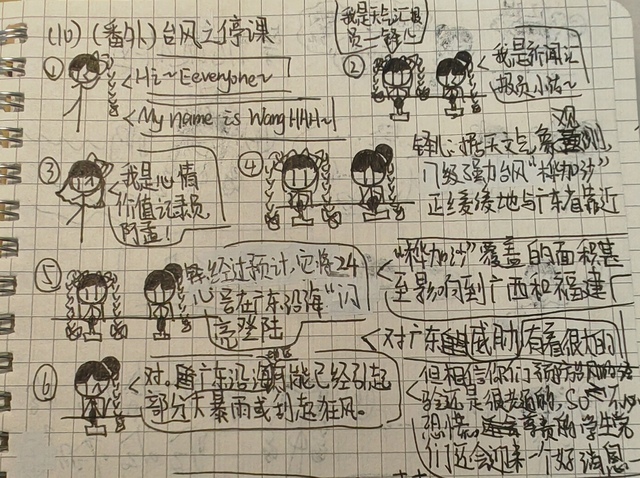 (10)(番外)台风之停课
①
Hi~Eeveryone~
My name is Wang HAH~
我是天气汇报
员一铎心
②
我是新闻汇
报员小沽~
③
我是心情
价值记录员
阿孟!
④
铎心:据天文气象观测,
门级强力台风"桦加沙"
正缓缓地与广东省靠近
⑤
铎心
经过预计,它将24
号在广东沿海"闪
亮登陆
"桦加沙"覆盖的面积甚
至影响到广西和福建
对广东 威胁 有着很大的
⑥
对。广东沿海可能已经引起
部分大暴雨或刮起狂风。
但相信你们
验还是很老道的,so~不必
恐慌 尊贵的学生党
们还会迎来一个好消息